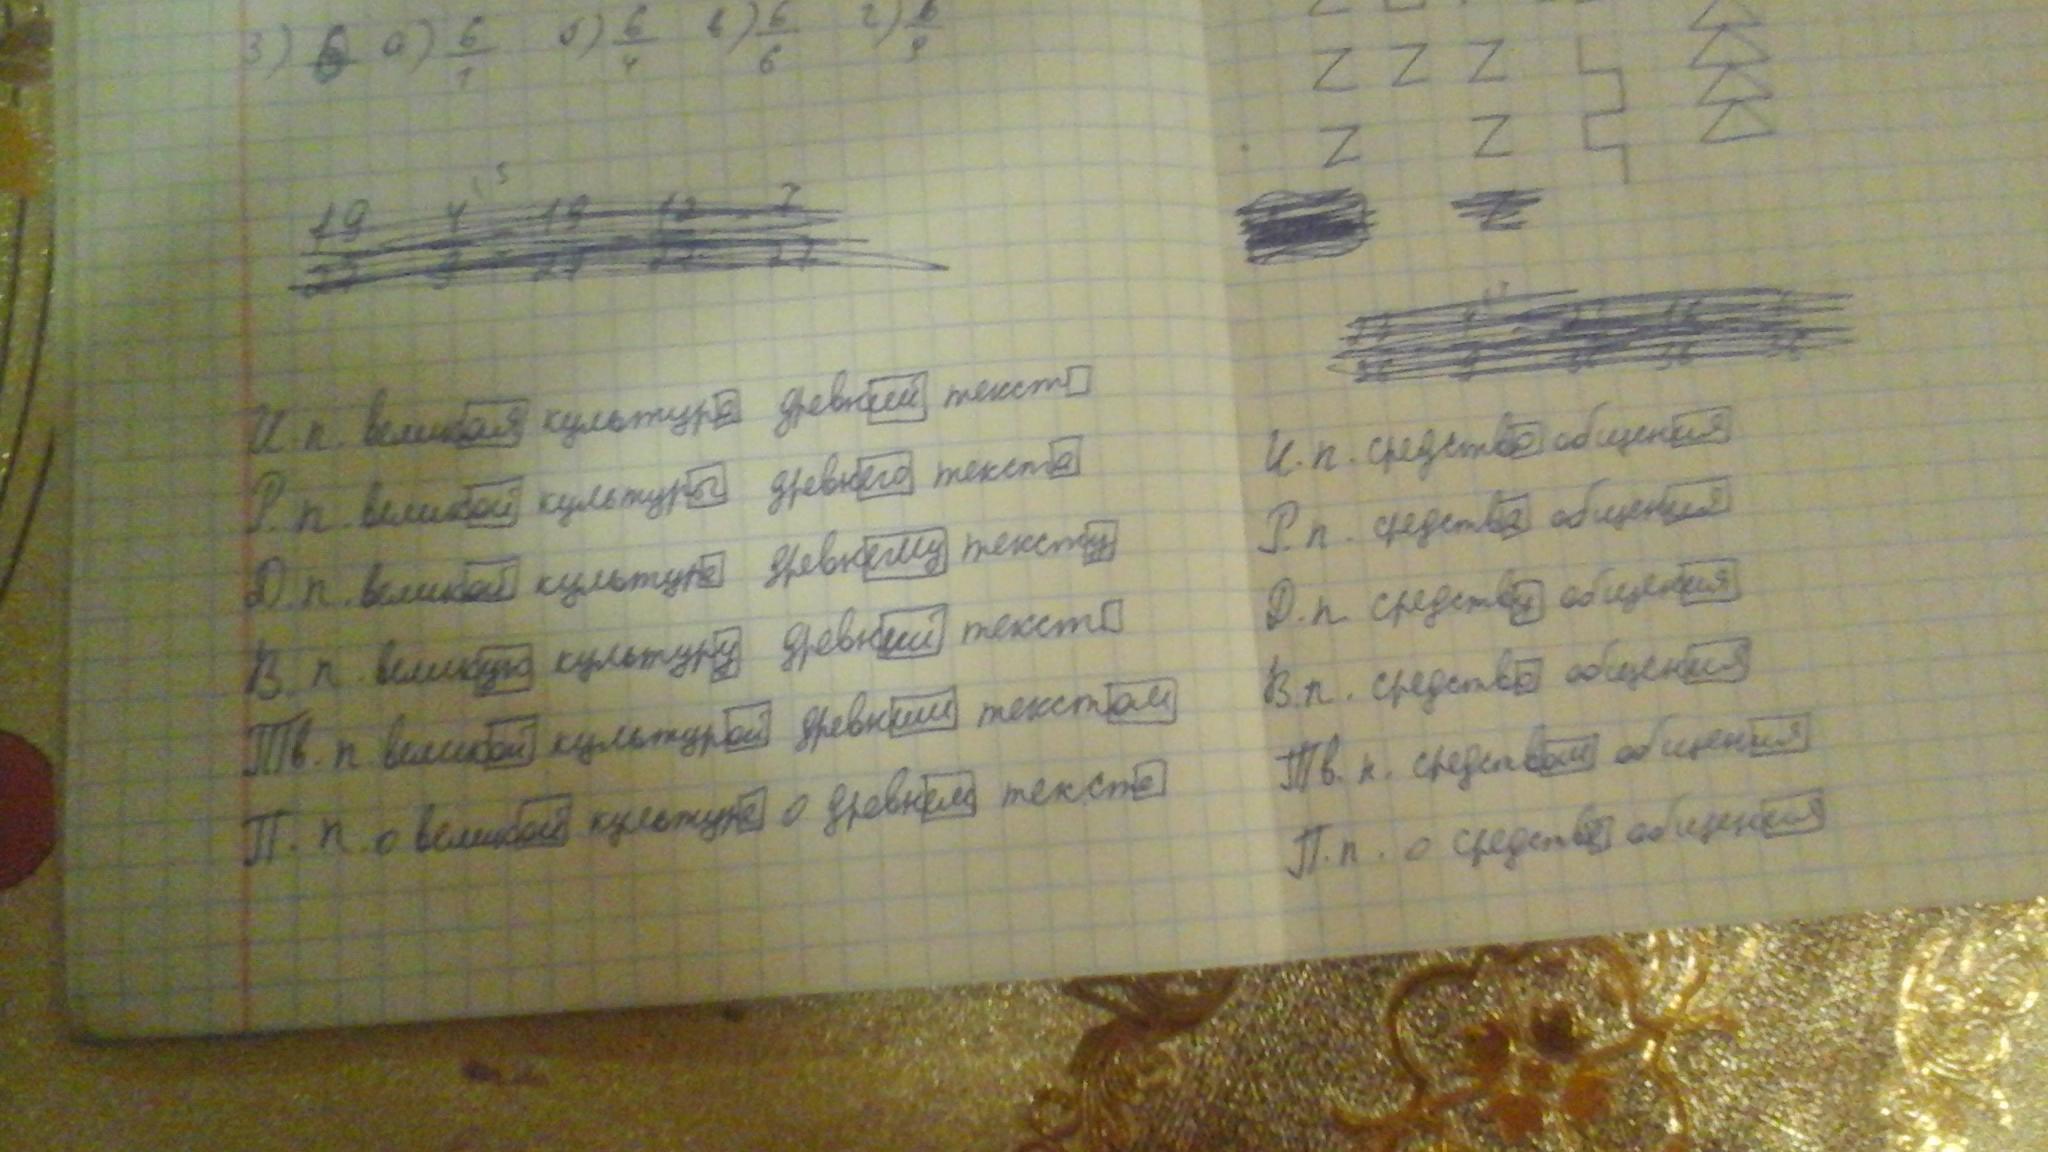 3) а) 6/1 б) 6/4 в) 6/6 г) 6/9
Z Z Z
Z Z
19 4 19 12 7
И. п. великая культура древний текст
Р. п. великой культуры древнего текста
Д. п. великой культуре древнему тексту
В. п. великую культуру древний текст
Тв. п великой культурой древним текстом
П. п. о великой культуре о древнем тексте
И. п. средство общения
Р. п. средства общения
Д. п. средству общения
В. п. средство общения
Тв. п. средством общения
П. п. о средстве общения